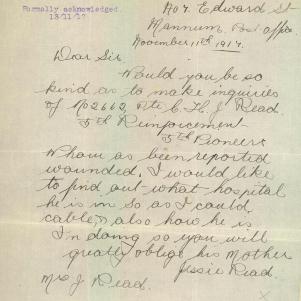 Formally acknowledged.
13/11/17
Edward St
Mannum. Post Office.
November 11th 1917.
Dear Sir
Would you be so
kind as to make inquiries
of No 2662, Pte C. H. J. Read
5th Reinforcement
5th Pioneers
Whom as been reported
wounded, I would like
to find out what hospital
he is in so as I could
cable, also how he is
In doing so you will
greatly oblige his Mother
Jessie Read.
Mrs J Read.